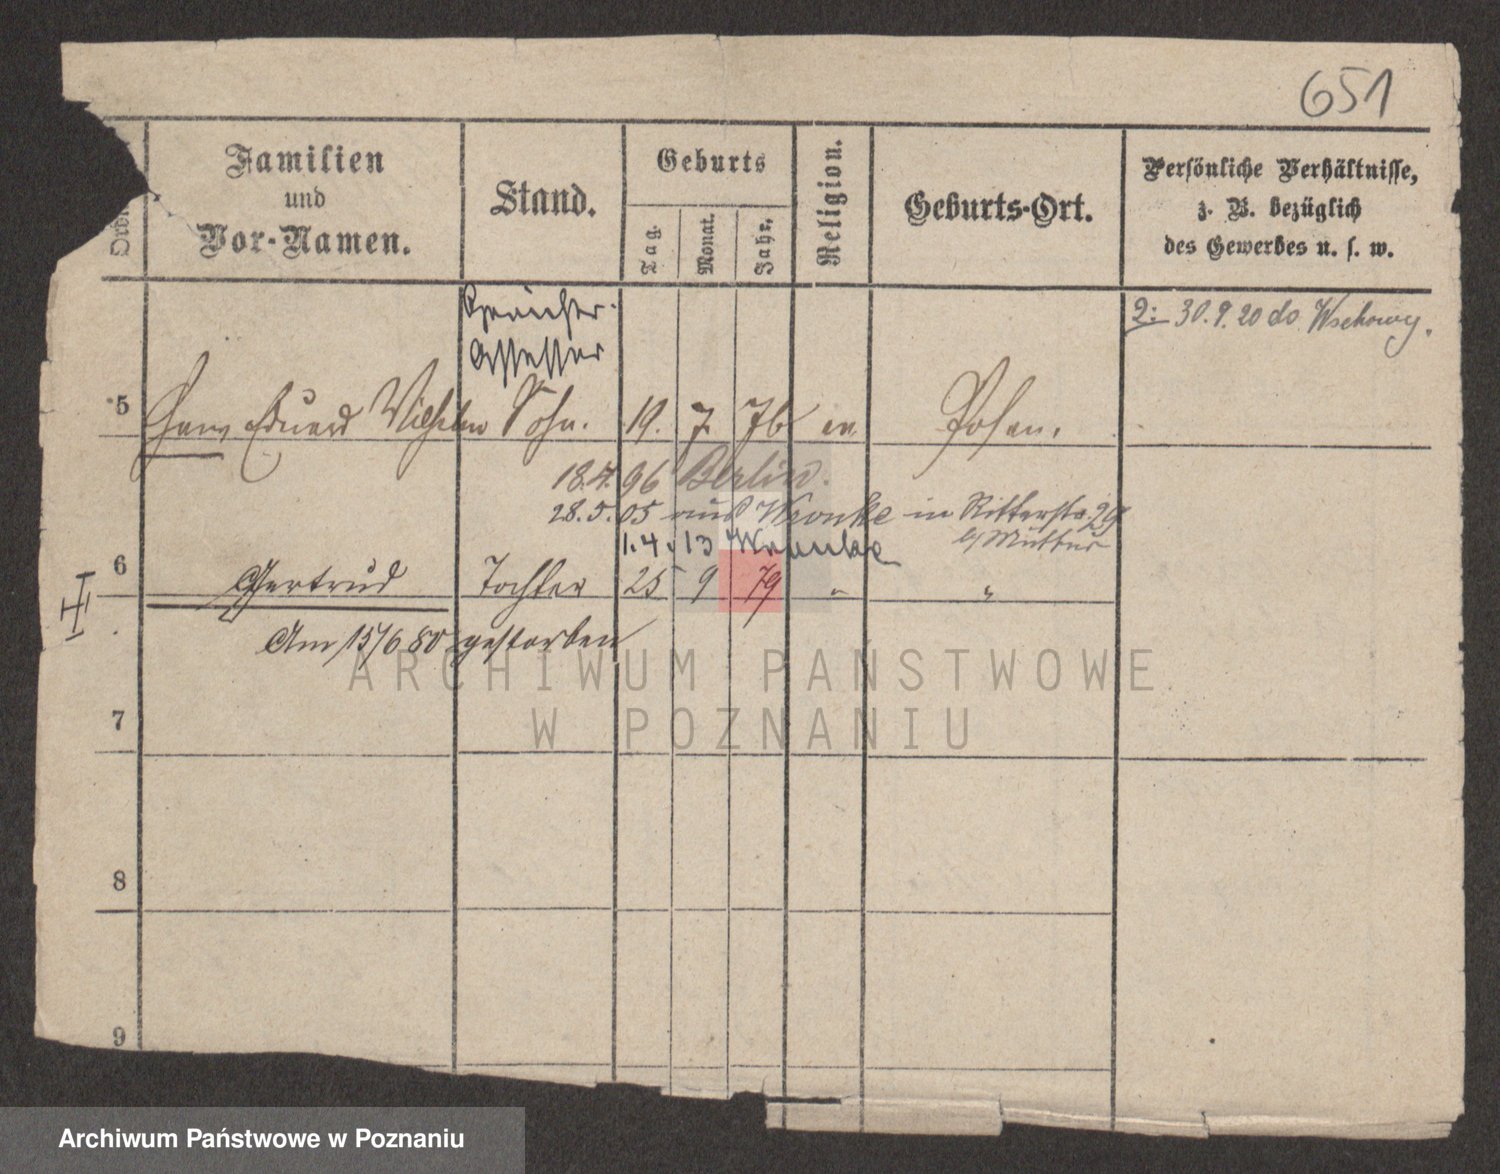 651
Ordn
Familien
und
Vor-Namen.
Stand.
Geburts
Tag.
Monat.
Jahr.
Religion.
Geburts-Ort.
Persönliche Verhältnisse,
z. B. bezüglich
des Gewerbes u. s. w.
2: 30.9.20 do Wschowy.
Assessor
5 Hans Eduard Wilhelm Sohn. 19. 7. 76 ev. Posen.
18.4.96 Berlin.
28.5.05 aus Wronke in Ritterstr. 29
1.4.13 Wronke b/ Mutter
6 Gertrud Tochter 25 9 79 " "
Am 15/6 80 gestorben
7
8
9
ARCHIWUM PAŃSTWOWE
W POZNANIU
Archiwum Państwowe w Poznaniu